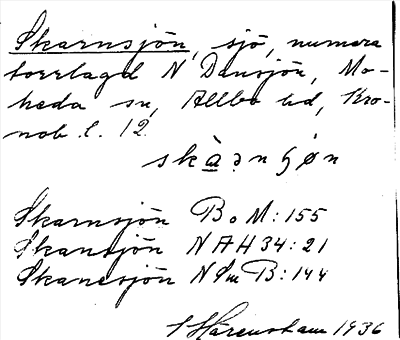 Skarnsjön, sjö, numera
torrlagd N Dansjön, Mo-
heda sn, Allbo hd, Kro-
nob. l. 12.
skàɔnɧøn
Skarnsjön BoM: 155
Skansjön NAH 34: 21
Skanesjön NSmB: 144
Härenstam 1936